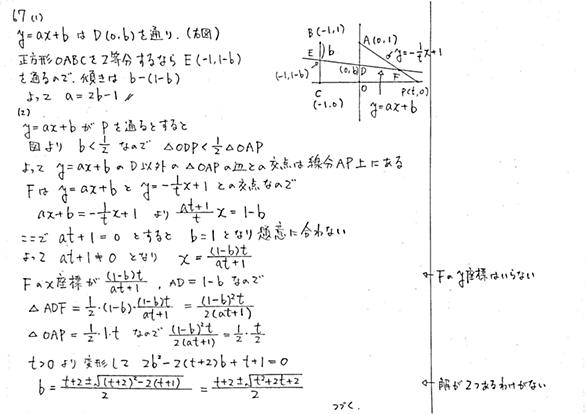 67 (1)
y=ax+b は D(0,b) を通り、(右図)
正方形OABCを2等分するなら E(-1,1-b)
を通るので、傾きは b-(1-b)
よって a=2b-1 //
(2)
y=ax+b が Pを通るとすると
図より b<1/2 なので △ODP<1/2△OAP
よって y=ax+b の D以外の △OAPの辺との交点は線分AP上にある
Fは y=ax+b と y=-1/t x+1 との交点なので
ax+b=-1/t x+1 より (at+1)/t x=1-b
ここで at+1=0 とすると b=1となり題意に合わない
よって at+1≠0 となり x=(1-b)t/(at+1)
Fのx座標が (1-b)t/(at+1) , AD=1-b なので
△ADF=1/2・(1-b)・(1-b)t/(at+1) = (1-b)²t/2(at+1)
△OAP=1/2・1・t なので (1-b)²t/2(at+1)=1/2・t/2
t>0 より 変形して 2b²-2(t+2)b+t+1=0
b=(t+2±√((t+2)²-2(t+1)))/2 =(t+2±√(t²+2t+2))/2
つづく.
B(-1,1)
A(0,1)
y=-1/t x+1
E
b
(-1,1-b)
(0,b)
D
F
C
(-1,0)
O
P(t,0)
y=ax+b
← Fのy座標はいらない
← 解が2つあるわけがない